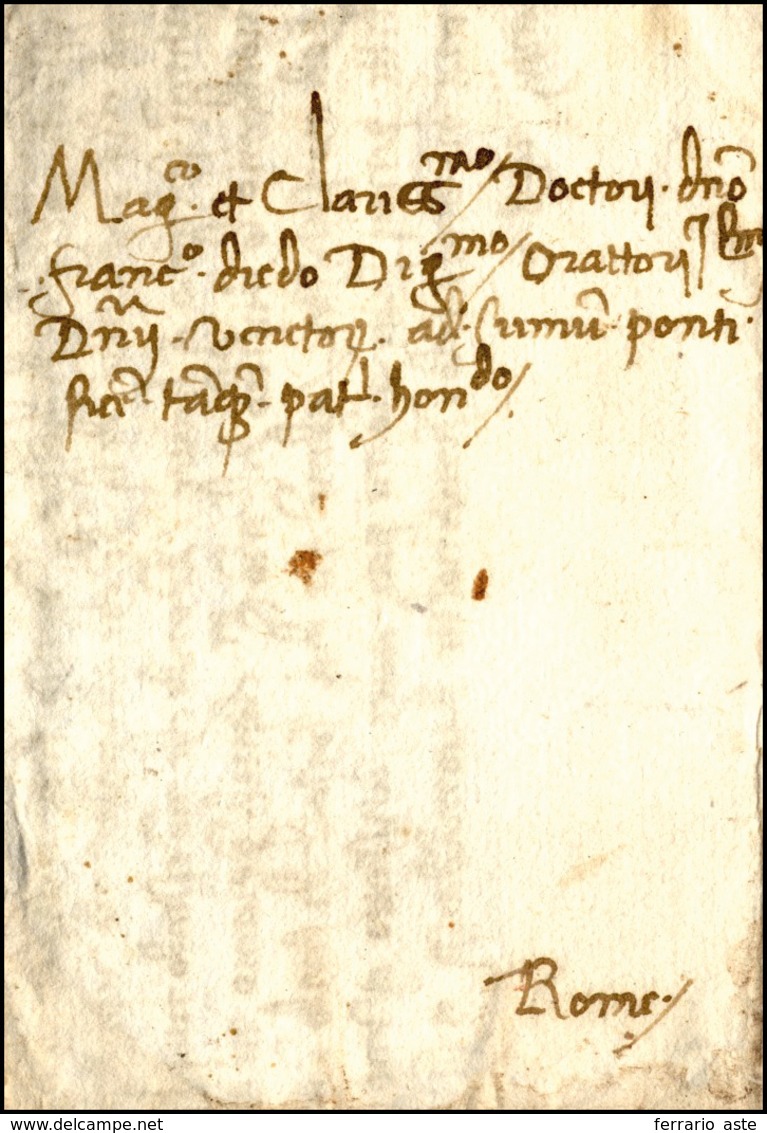 Mag.co et Clariss.mo Doctori. dño
franc.o diedo Dig.mo Orattori
Dñij. venetor. ad. sumũ ponti
ficẽ tãq̃. pat. hon.do
Rome.
www.delcampe.net
ferrario aste